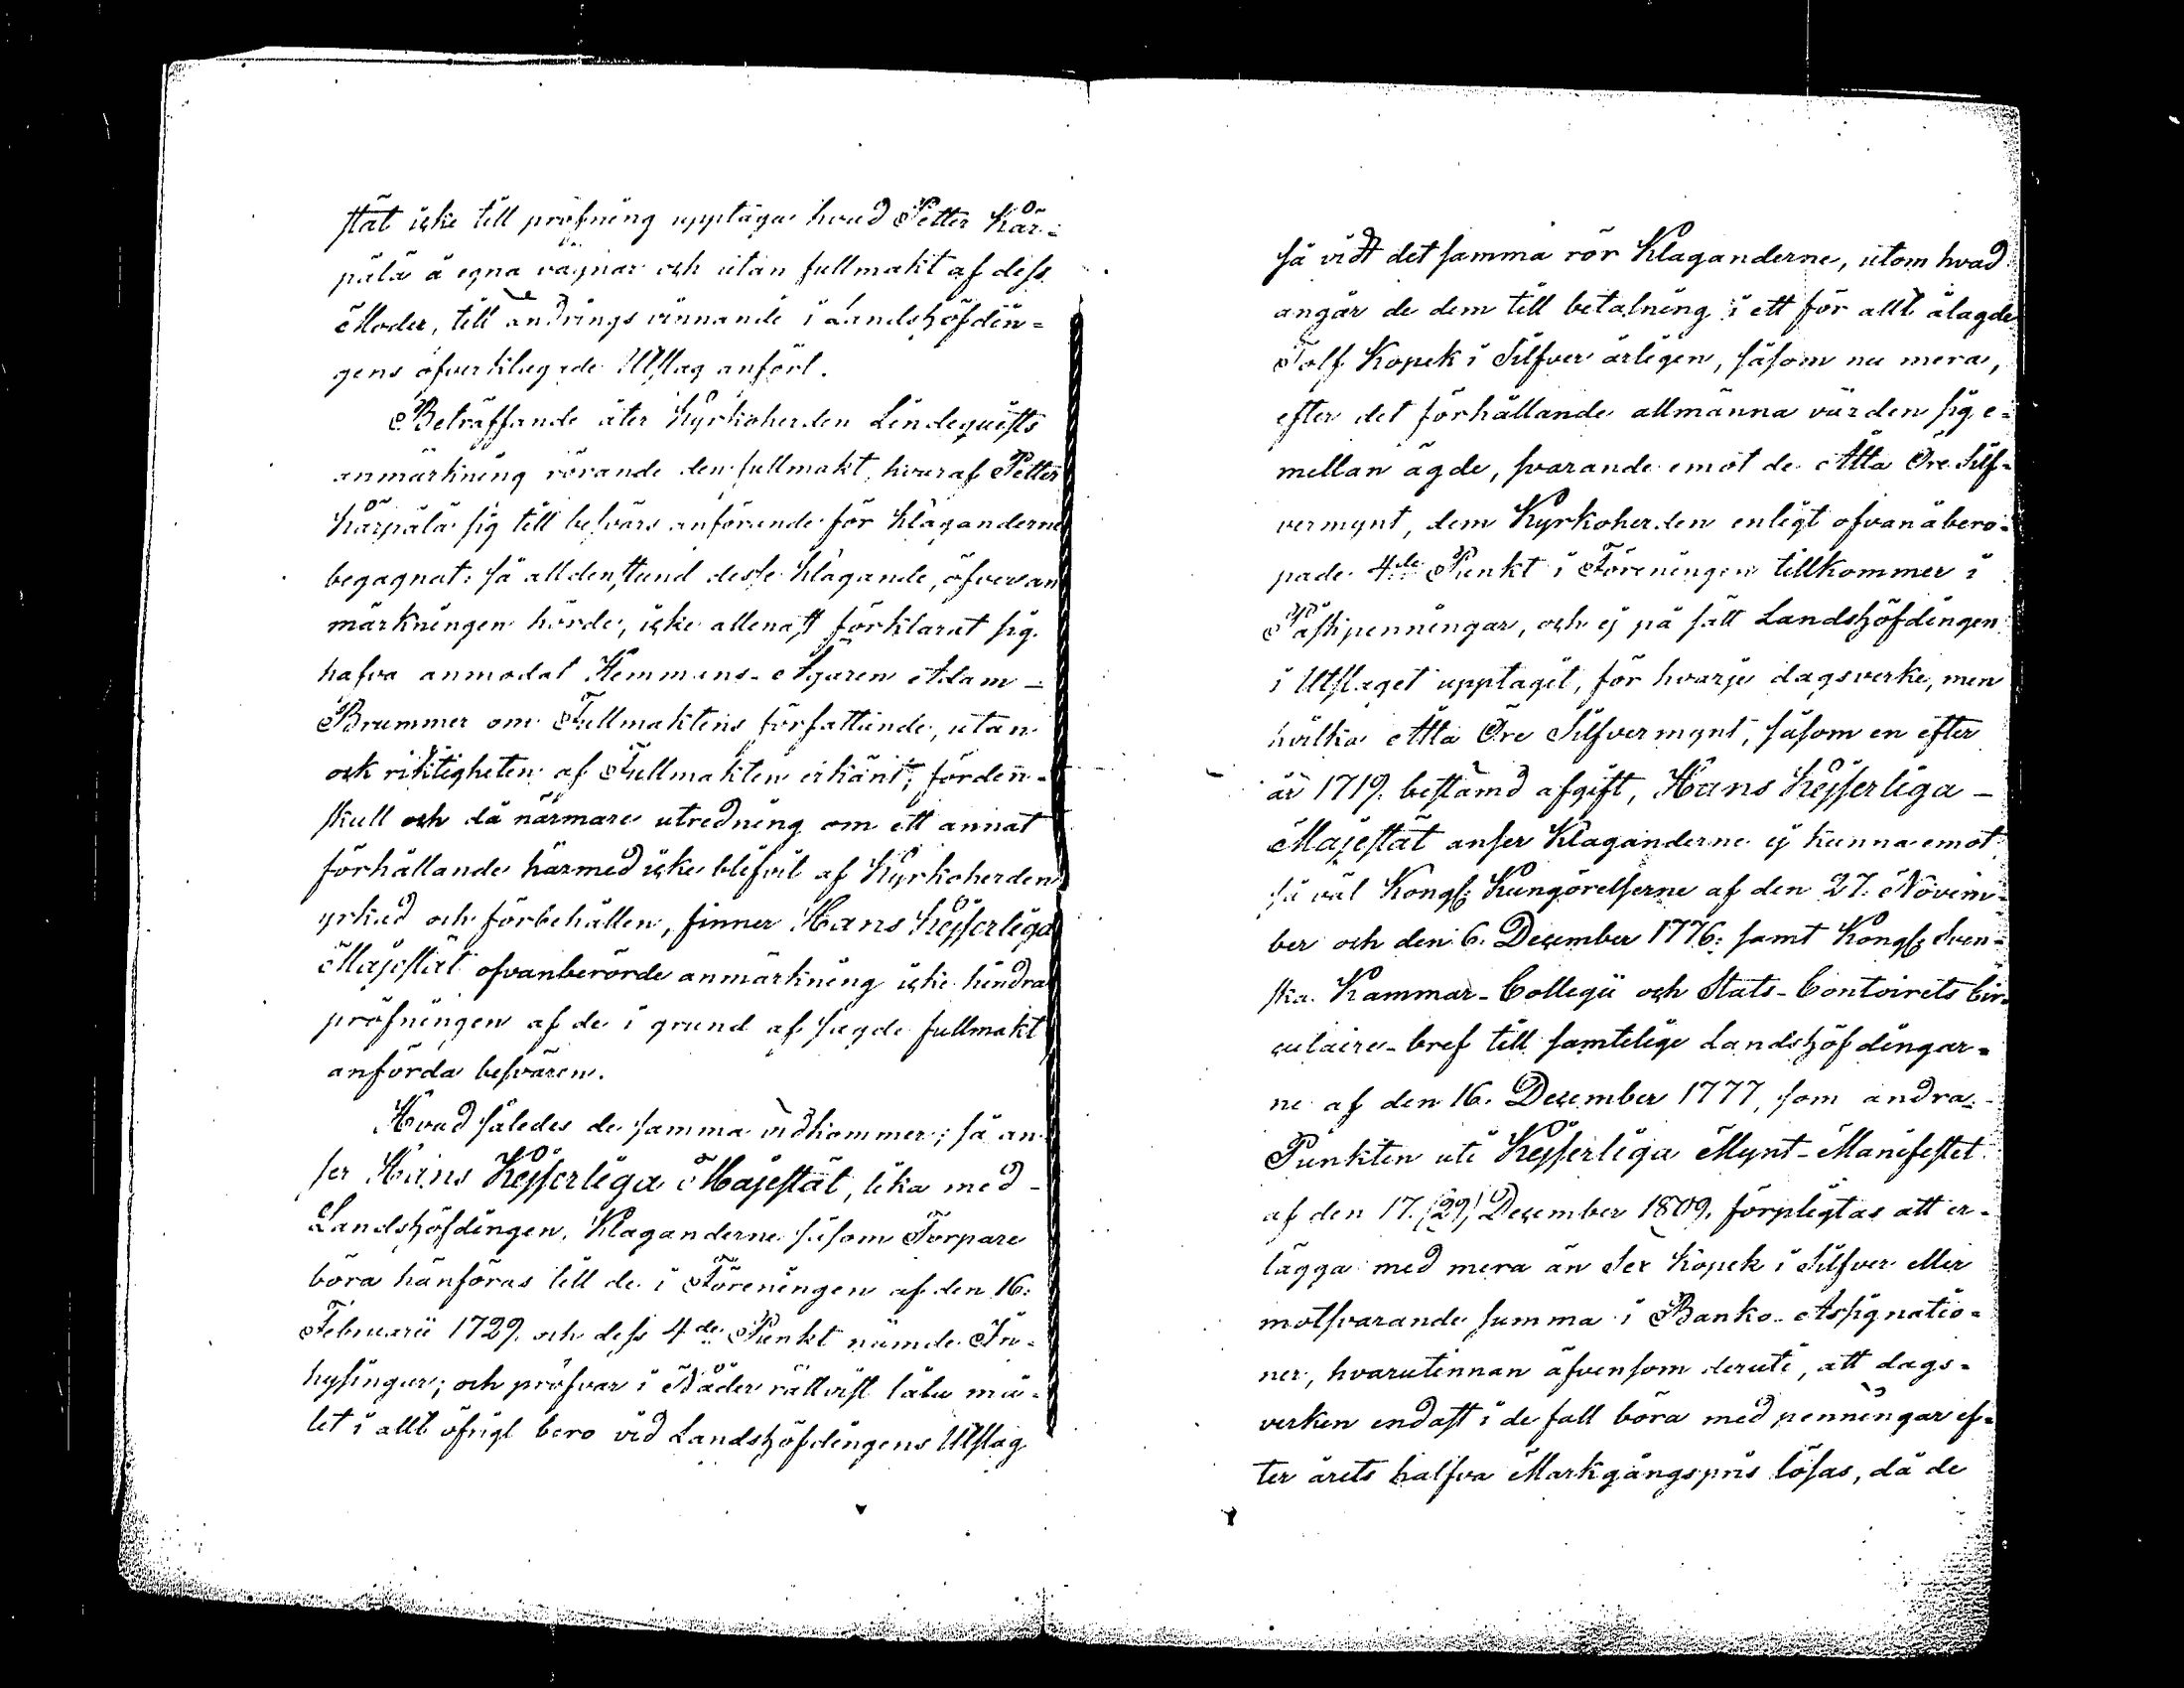 stät icke till pröfning upptaga hvad Petter Kär-
pälä å egna vägnar och utan fullmakt af dess
Moder, till ändrings vinnande i Landshöfdin-
gens öfverklagade Utslag anfört.
Beträffande åter Kyrkoherden Lindequists
anmärkning rörande den fullmakt, hvaraf Petter
Kärpälä sig till besvärs anförande för Klaganderne
begagnat: så alldenstund desse Klagande, öfver an
märkningen hörde, icke allenast förklarat sig
hafva anmodat Hemmans-Ägaren Adam
Brummer om Fullmaktens författande, utan
ock riktigheten af Fullmakten erkänt; förden-
skull och då närmare utredning om ett annat
förhållande härmed icke blifvit af Kyrkoherden
yrkad och förbehållen, finner Hans Kejserliga
Majestät ofvanberörde anmärkning icke hindra
pröfningen af de i grund af sagde fullmakt
anförda besvären.
Hvad således de samma vidkommer; så an-
ser Hans Kejserliga Majestät, lika med
Landshöfdingen, Klaganderne såsom Torpare
böra hänföras till de i Föreningen af den 16.
Februarii 1729. och dess 4de Punkt nämde In-
hysingar; och pröfvar i Nåder rättvist låta må-
let i allt öfrigt bero vid Landshöfdingens Utslag
så vidt det samma rör Klaganderne, utom hvad
angår de dem till betalning i ett för allt ålagde
Tolf Kopek i Silfver årligen, såsom nu mera,
efter det förhållande allmänna värden sig e-
mellan ägde, svarande emot de Åtta Öre Silf-
vermynt, dem Kyrkoherden enligt ofvanåbero-
pade 4de Punkt i Föreningen tillkommer i
Påskpenningar, och ej på sätt Landshöfdingen
i Utslaget upptagit, för hvarje dagsverke, men
hvilka Åtta Öre Silfvermynt, såsom en efter
år 1719. bestämd afgift, Hans Kejserliga
Majestät anser Klaganderne ej kunna emot
så väl Kongl: Kungörelserne af den 27. Novem-
ber och den 6. December 1776. samt Kongl: Sven-
ska Kammar-Collegii och Stats-Contoirets Cir-
culaire-bref till samtelige Landshöfdingar-
ne af den 16. December 1777, som andra
Punkten uti Kejserliga Mynt-Manifestet
af den 17. (29) December 1809. förpligtas att er-
lägga med mera än Sex Kopek i Silfver eller
motsvarande summa i Banko-Assignatio-
ner, hvarutinnan äfvensom deruti, att dags-
verken endast i de fall böra med penningar ef-
ter årets halfva Markgångspris lösas, då de